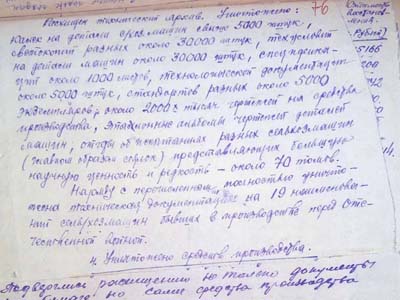 Похищен технический архив. Уничтожено: 76
на детали сельхозмашин свыше 5000 штук,
светокопий разных около 30000 штук, техусловий
на детали машин около 30000 штук,
около 1000 листов, технологической документации
около 5000 штук, стандартов разных около 5000
экземпляров, около 2000 тысяч чертежей на средства
производства, эталонные альбомы чертежей деталей
машин, отчеты об испытаниях разных сельхозмашин
(главным образом сеялок) представляющих большую
научную ценность и редкость - около 70 томов.
Наряду с перечисленным полностью уничто-
жена техническая документация на 19 наименова-
ний сельхозмашин бывших в производстве перед Оте-
чественной войной.
4. Уничтожено средств производства.
Подверглись расхищению не только документы
но сами средства производства
рублей
5166
14.